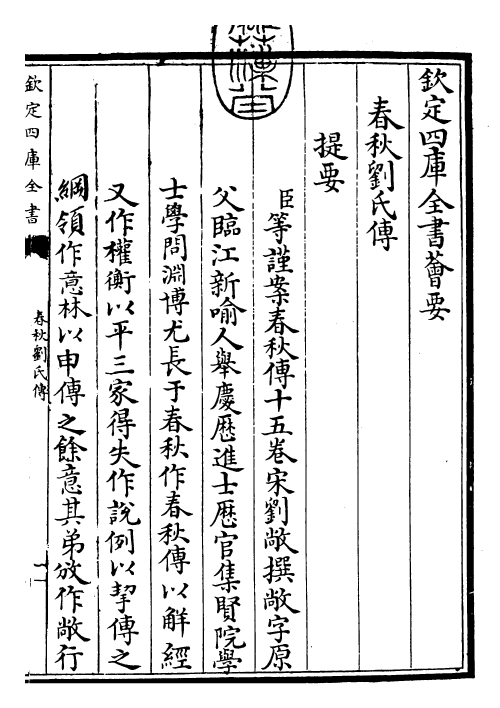 欽定四庫全書薈要
春秋劉氏傳
提要
臣等謹案春秋傳十五卷宋劉敞撰敞字原
父臨江新喻人舉慶歷進士歷官集賢院學
士學問淵博尤長于春秋作春秋傳以解經
又作權衡以平三家得失作説例以挈傳之
綱領作意林以申傳之餘意其弟攽作敞行
欽定四庫全書
春秋劉氏傳
一